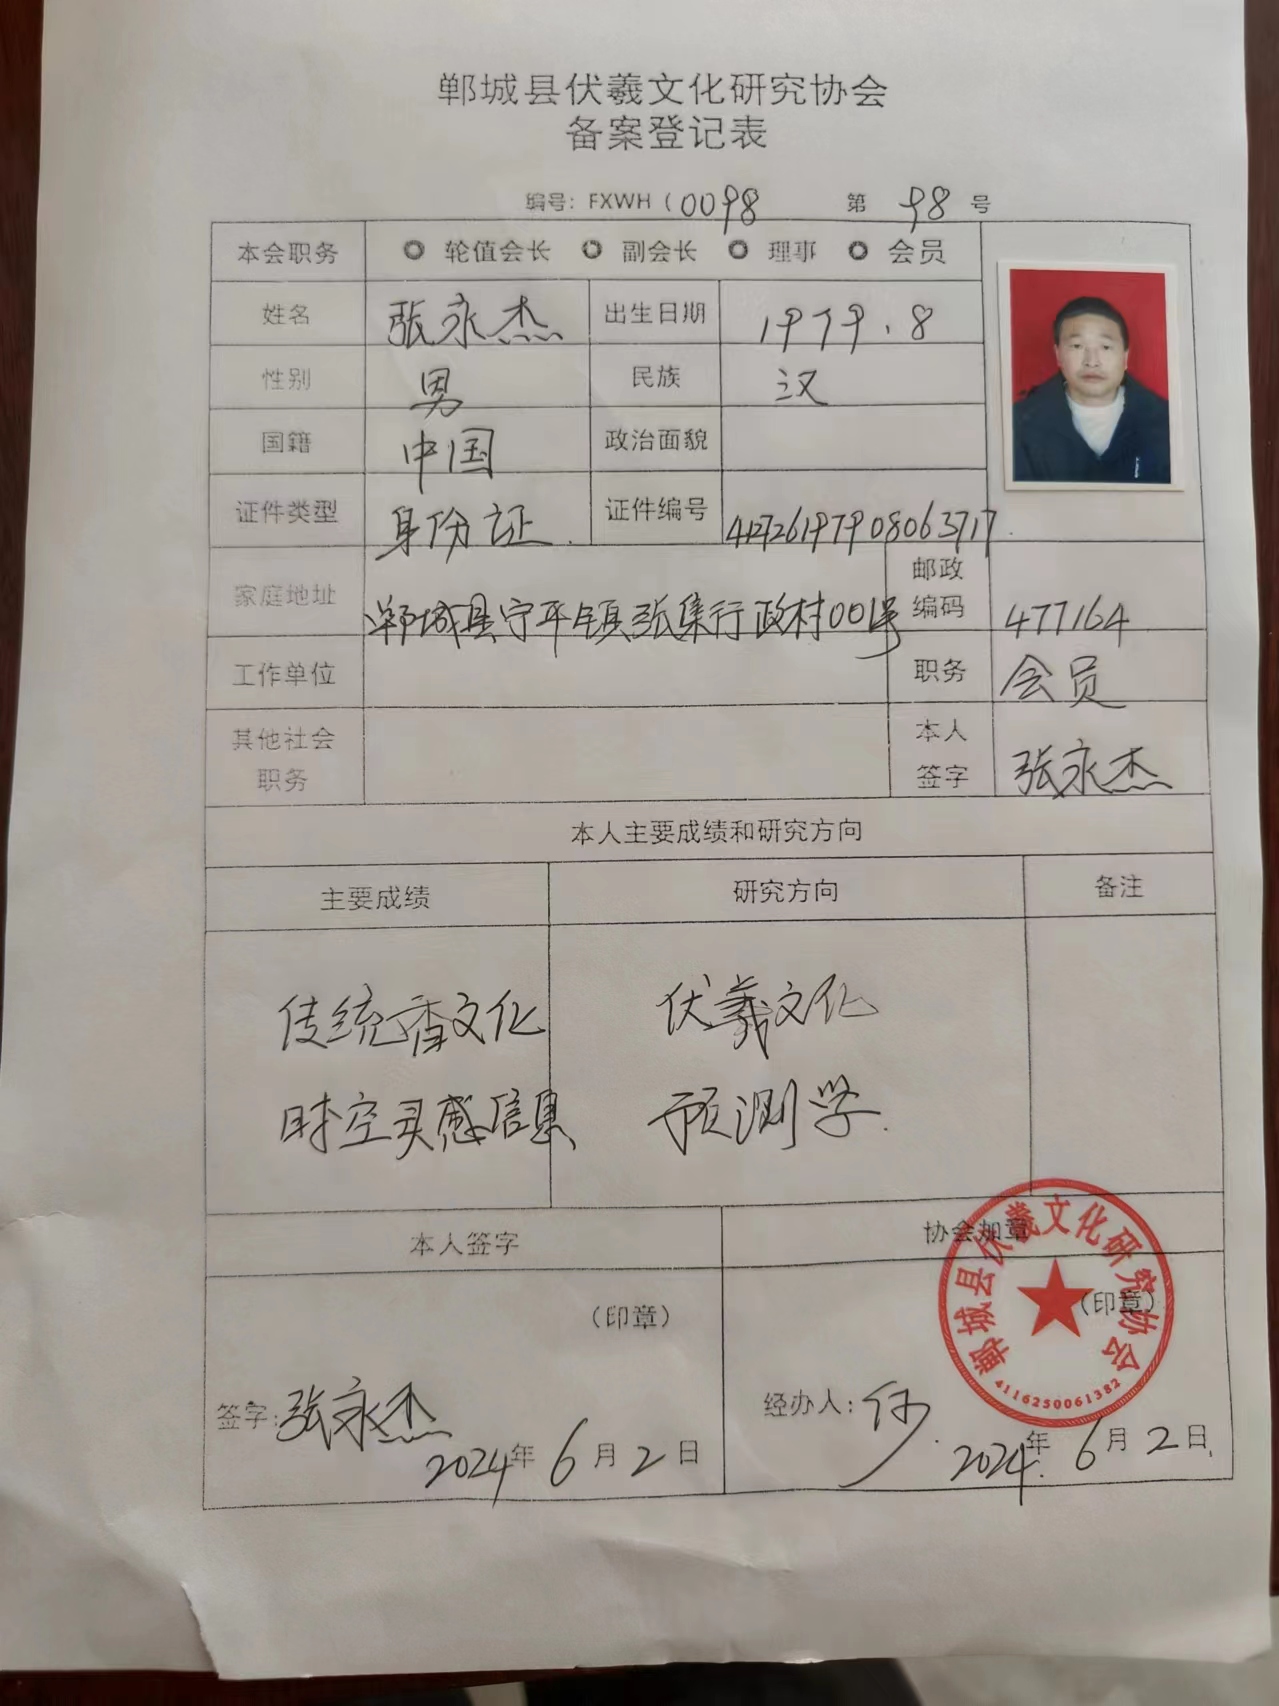 郸城县伏羲文化研究协会
备案登记表
编号：FXWH（0098 第 98 号
本会职务 轮值会长 副会长 理事 会员
姓名 张永杰 出生日期 1979.8
性别 男 民族 汉
国籍 中国 政治面貌
证件类型 身份证 证件编号 412726197908063717
家庭地址 郸城县宁平镇张集行政村001号 邮政编码 477164
工作单位 职务 会员
其他社会职务 本人签字 张永杰
本人主要成绩和研究方向
主要成绩 研究方向 备注
传统香文化 伏羲文化
时空灵感信息 预测学
本人签字 协会加章
（印章） （印章）
签字：张永杰 经办人：
2024年6月2日 2024年6月2日
郸城县伏羲文化研究协会
4116250061382